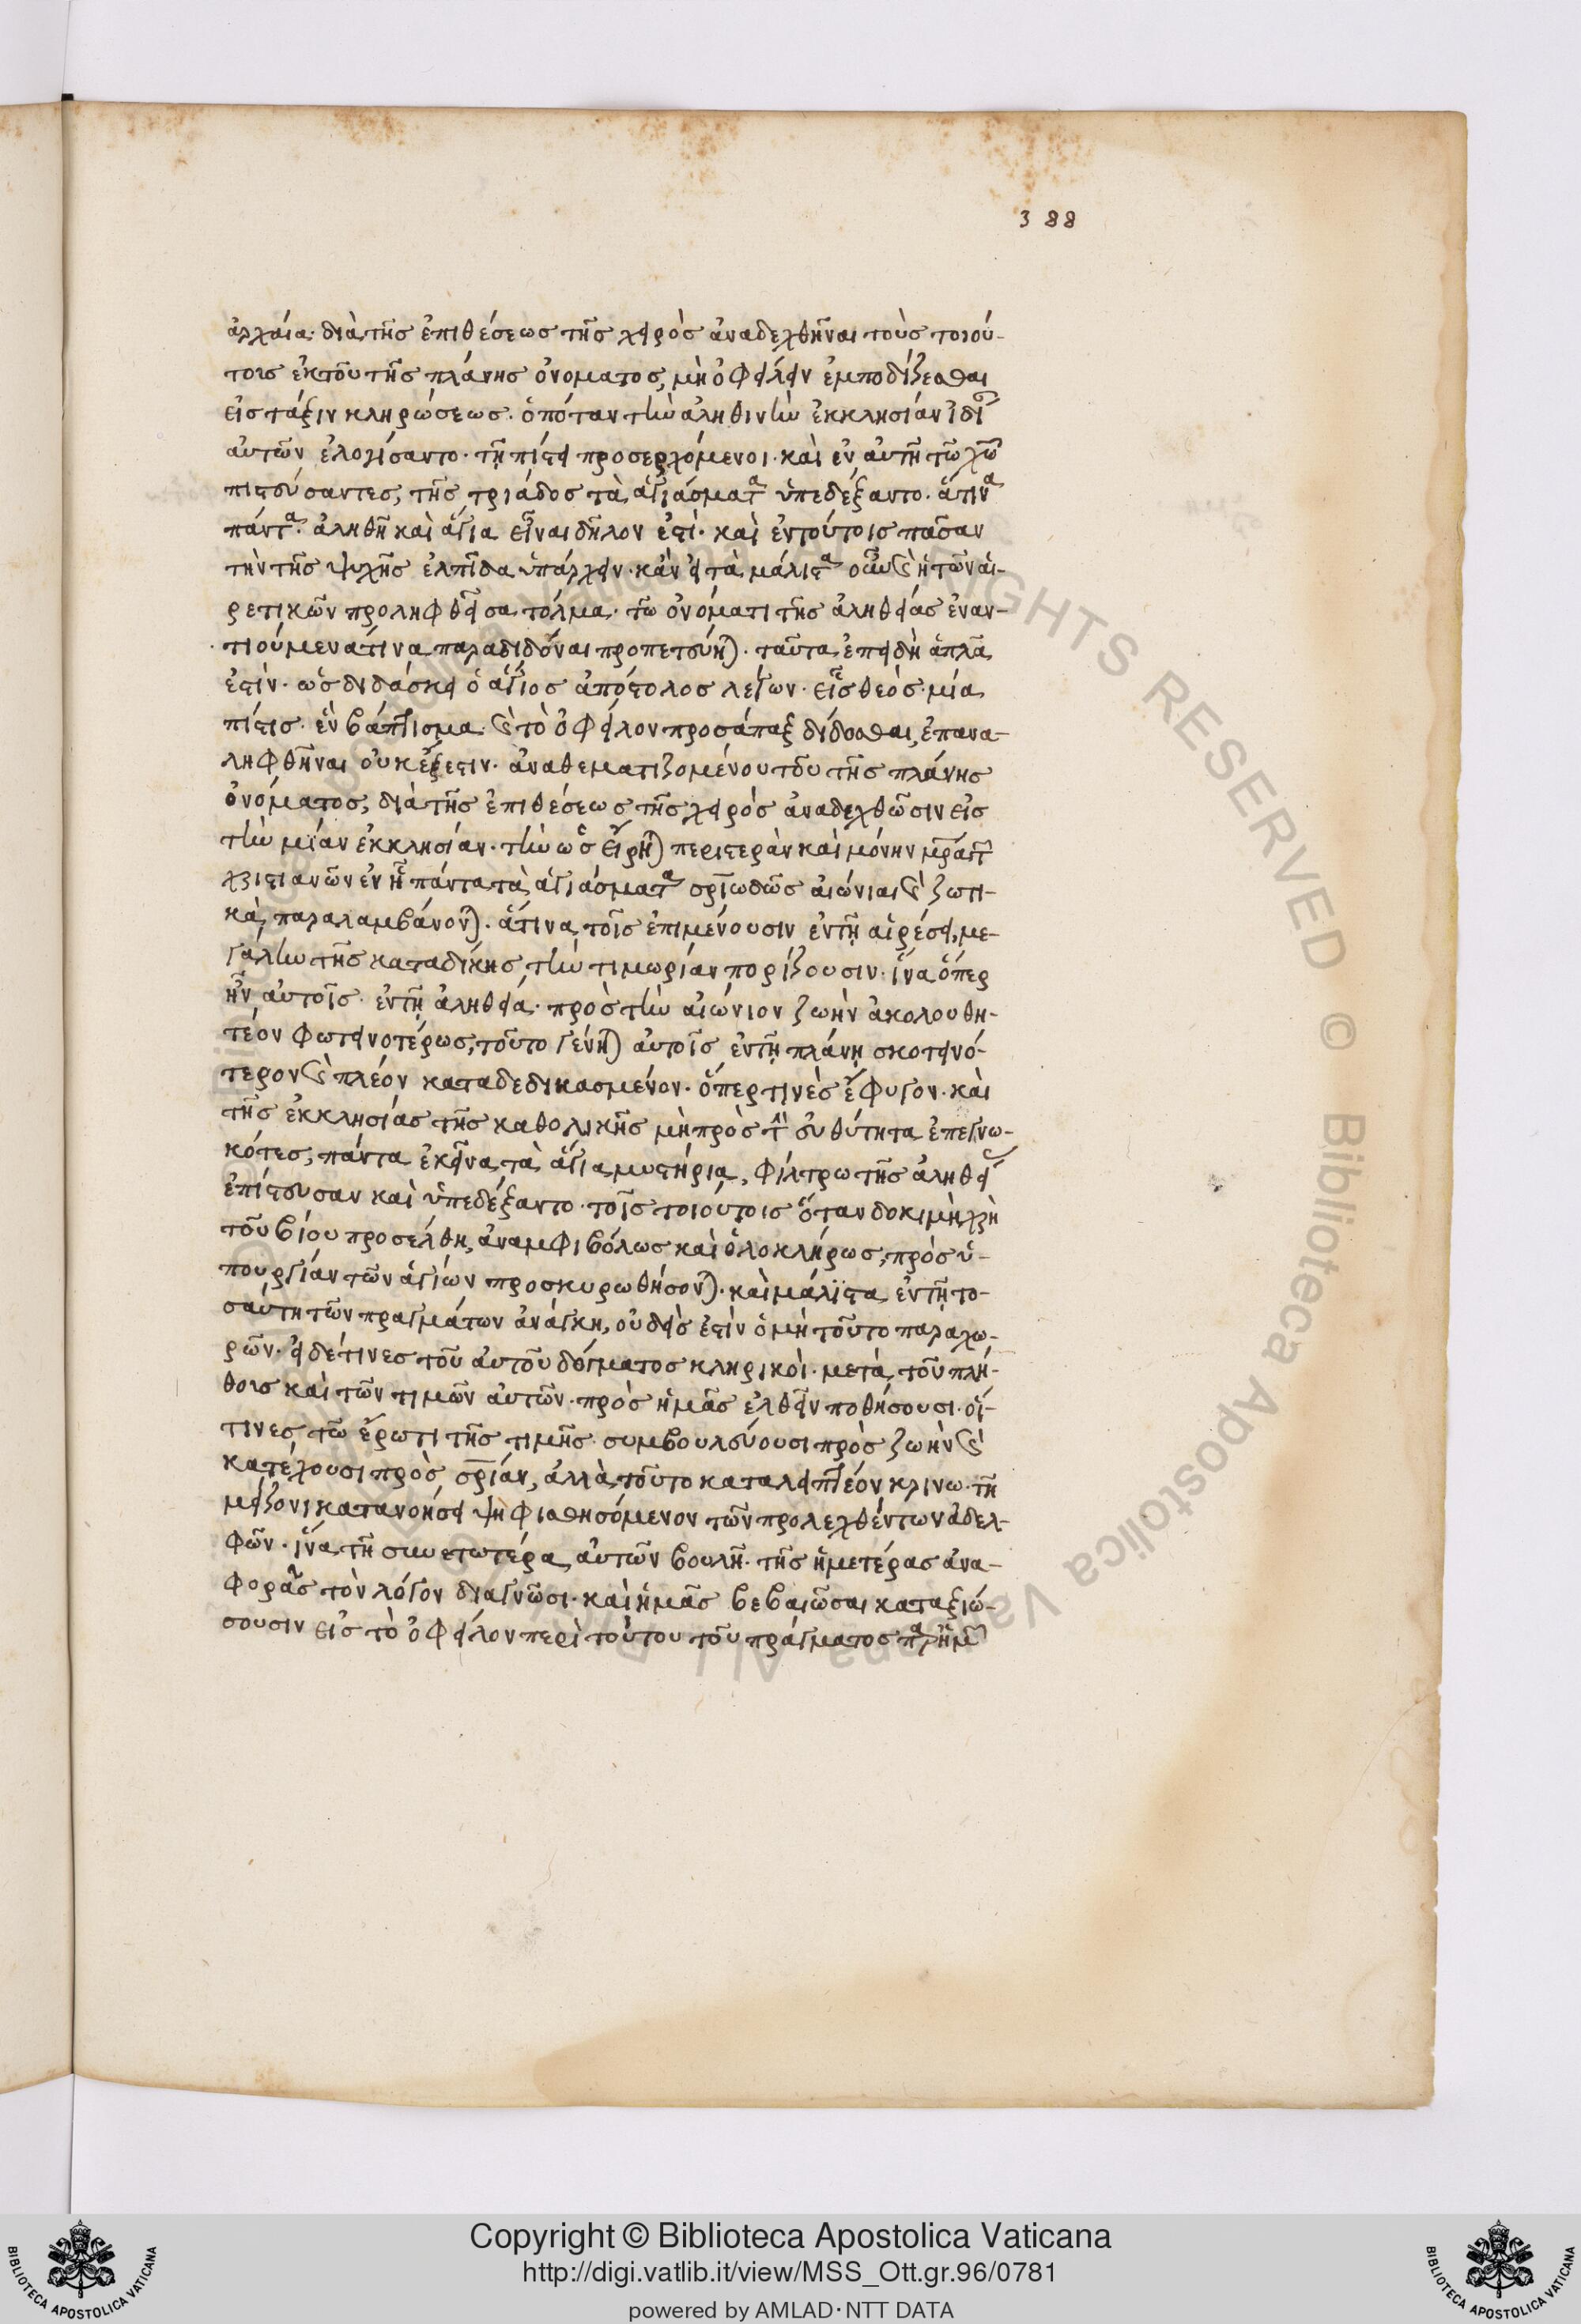 388
ἀρχαία· διὰ τῆς ἐπιθέσεως τῆς χειρὸς ἀναδεχθῆναι τοὺς τοιού-
τους ἐκ τοῦ τῆς πλάνης ὀνόματος, μὴ ὀφείλειν ἐμποδίζεσθαι
εἰς τάξιν κληρώσεως· ὁπόταν τὴν ἀληθινὴν ἐκκλησίαν ἰδί
αὐτῶν ἐλογίσαντο· τῇ πίστει προσερχόμενοι· καὶ ἐν αὐτῇ τῶ χω
πιστεύσαντες, τῆς τριάδος τὰ ἁγιάσματα ὑπεδέξαντο· ἅτινα
πάντα· ἀληθῆ καὶ ἅγια εἶναι δῆλον ἐστί· καὶ ἐν τούτοις πᾶσαν
τὴν τῆς ψυχῆς ἐλπίδα ὑπάρχειν· κἂν εἰ τὰ μάλιστα καὶ ἡ τῶν αἱ-
ρετικῶν προληφθεῖσα τόλμα· τῶ ὀνόματι τῆς ἀληθείας ἐναν-
τιούμενά τινα παραδιδόναι προπετεύηται· ταῦτα ἐπειδὴ ἁπλᾶ
ἐστίν· ὡς διδάσκει ὁ ἅγιος ἀπόστολος λέγων· εἷς θεὸς· μία
πίστις· ἓν βάπτισμα· καὶ τὸ ὀφεῖλον προσάπαξ δίδοσθαι, ἐπανα-
ληφθῆναι οὐκ ἔξεστιν· ἀναθεματιζομένου τοῦ τῆς πλάνης
ὀνόματος, διὰ τῆς ἐπιθέσεως τῆς χειρὸς ἀναδεχθῶσιν εἰς
τὴν μίαν ἐκκλησίαν· τὴν ὡς εἴρηται περιστερὰν καὶ μόνην μρα τ
χριστιανῶν ἐν ᾗ πάντα τὰ ἁγιάσματα σριωδῶς αἰώνιαι καὶ ζωτι-
κὰ παραλαμβάνονται· ἅτινα τοῖς ἐπιμένουσιν ἐν τῇ αἱρέσει, με-
γάλην τῆς καταδίκης τὴν τιμωρίαν πορίζουσιν· ἵνα ὅπερ
ἦν αὐτοῖς· ἐν τῇ ἀληθείᾳ· πρὸς τὴν αἰώνιον ζωὴν ἀκολουθη-
τέον φωτεινοτέρως, τοῦτο γένηται αὐτοῖς ἐν τῇ πλάνῃ σκοτεινό-
τερον καὶ πλέον καταδεδικασμένον· ὅπερ τινὲς ἔφυγον· καὶ
τῆς ἐκκλησίας τῆς καθολικῆς μὴ πρὸς τὴν εὐθύτητα ἐπεγνω-
κότες, πάντα ἐκεῖνα τὰ ἅγια μυστήρια, φίλτρω τῆς ἀληθείας
ἐπίστευσαν καὶ ὑπεδέξαντο· τοῖς τοιούτοις ὅταν δοκιμὴ χρὴ
τοῦ βίου προσέλθη, ἀναμφιβόλως καὶ ὁλοκλήρως, πρὸς ὑ-
πουργίαν τῶν ἁγίων προσκυρωθήσονται· καὶ μάλιστα ἐν τῇ το-
σαύτη τῶν πραγμάτων ἀνάγκη, οὐδεὶς ἐστὶν ὁ μὴ τοῦτο παραχω-
ρῶν· εἰ δέ τινες τοῦ αὐτοῦ δόγματος κληρικοὶ· μετὰ τοῦ πλή-
θους καὶ τῶν τιμῶν αὐτῶν· πρὸς ἡμᾶς ἐλθεῖν ποθήσουσι· οἵ-
τινες τῶ ἔρωτι τῆς τιμῆς· συμβουλεύουσι πρὸς ζωὴν καὶ
κατέχουσι πρὸς σριάν, ἀλλὰ τοῦτο καταλειπτέον κρίνω· τῆ
μείζονι κατανοήσει ψηφισθησόμενον τῶν προλεχθέντων ἀδελ-
φῶν· ἵνα τῆ συνετωτέρα αὐτῶν βουλῆ· τῆς ἡμετέρας ἀνα-
φορᾶς τὸν λόγον διαγνῶσι· καὶ ἡμᾶς βεβαιῶσαι καταξιώ-
σουσιν εἰς τὸ ὀφεῖλον περὶ τούτου τοῦ πράγματος παρ' ἡμ
Copyright © Biblioteca Apostolica Vaticana
http://digi.vatlib.it/view/MSS_Ott.gr.96/0781
powered by AMLAD·NTT DATA
BIBLIOTECA APOSTOLICA VATICANA
BIBLIOTECA APOSTOLICA VATICANA